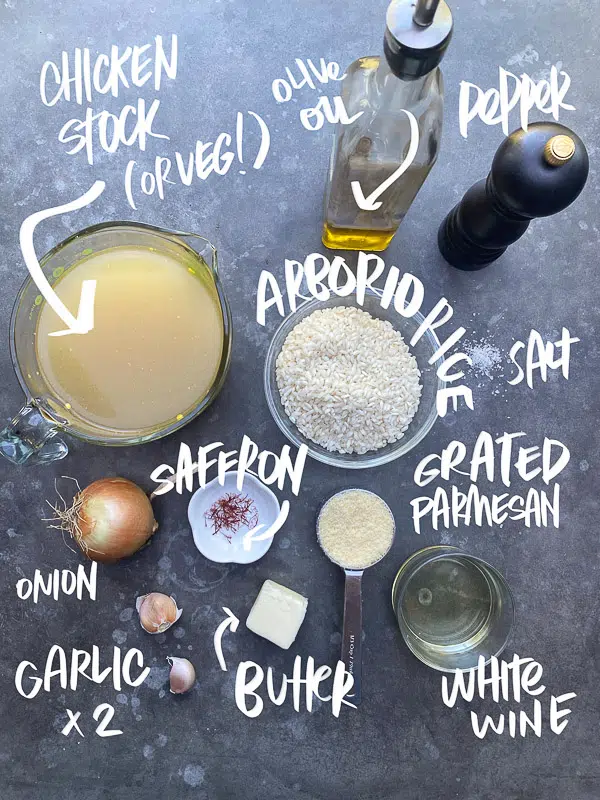 CHICKEN
STOCK
(OR VEG!)
OLIVE
OIL
PEPPER
ARBORIO RICE
SALT
SAFFRON
GRATED
PARMESAN
ONION
GARLIC
x 2
BUTTER
WHITE
WINE